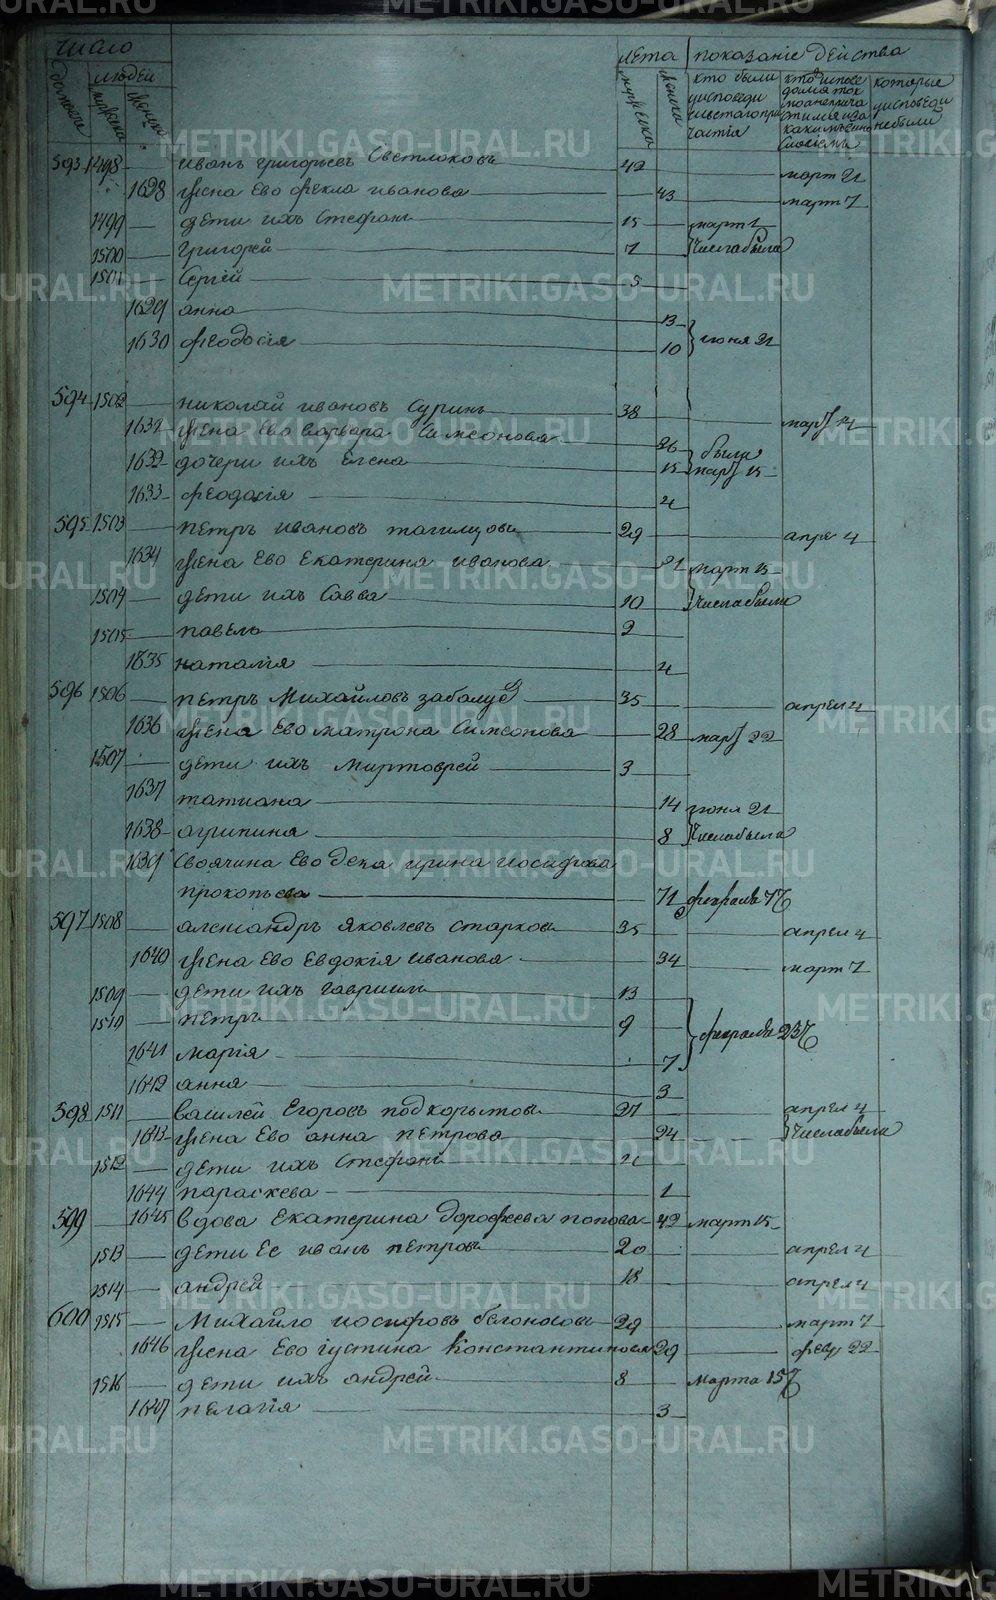 число лета показание действа
домовъ людей мужеска женска мужеска женска кто были у исповеди и святого при частiя которые у исповеди не были
593 1498 Иванъ Григорьевъ Светлаковъ 42 март 21
1628 жена Ево Фекла Иванова 43 март 7
1499 дети ихъ Стефанъ 15 март 1
1500 Григорей 7 числа была
1501 Сергiй 5
1629 анна 13
1630 феодосiя 10 июня 21
594 1502 николай ивановъ Суринъ 38 мар 14
1631 жена Ево варвара Симеонова 36 были
1632 дочери ихъ Елена 15 мар 15
1633 феодосiя 4
595 1503 петръ ивановъ тагилцовъ 29 апре 4
1634 жена Ево Екатерина иванова 31 март 15
1504 дети ихъ Савва 10 числа были
1505 павелъ 2
1635 наталiя 4
596 1506 петръ Михайловъ забалуе 35 апрел 4
1636 жена Ево матрона Симеонова 28 мар 22
1507 дети ихъ 3
1637 татиана 14 июня 21
1638 агрипина 8 числа была
1639 Своячина Ево дека ирина иосифова
прокопьева 71 февраля 17
597 1508 александръ Яковлевъ старковъ 35 апрел 4
1640 жена Ево Евдокiя иванова 34 март 7
1509 дети ихъ гаврiилъ 13
1510 петръ 9 февраля 23
1641 марiя 7
1642 анна 3
598 1511 василей Егоровъ подкорытовъ 27 апрел 4
1643 жена Ево анна петрова 24 числа были
1512 дети ихъ Стефанъ 4
1644 параскева 1
599 1645 вдова Екатерина дорофеева попова 42 март 15
1513 дети Ее иванъ петровъ 20 апрел 4
1514 андрей 18 апрел 4
600 1515 Михайло иосифовъ белоносовъ 29 март 7
1646 жена Ево iустина Константинова 29 февр 22
1516 дети ихъ андрей 8 марта 15
1647 пелагiя 3
METRIKI.GASO-URAL.RU